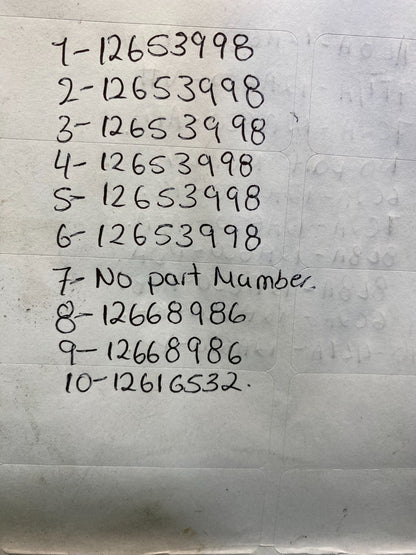 1-12653998
2-12653998
3-12653998
4-12653998
5-12653998
6-12653998
7- No part Mumber.
8-12668986
9-12668986
10-12616532.